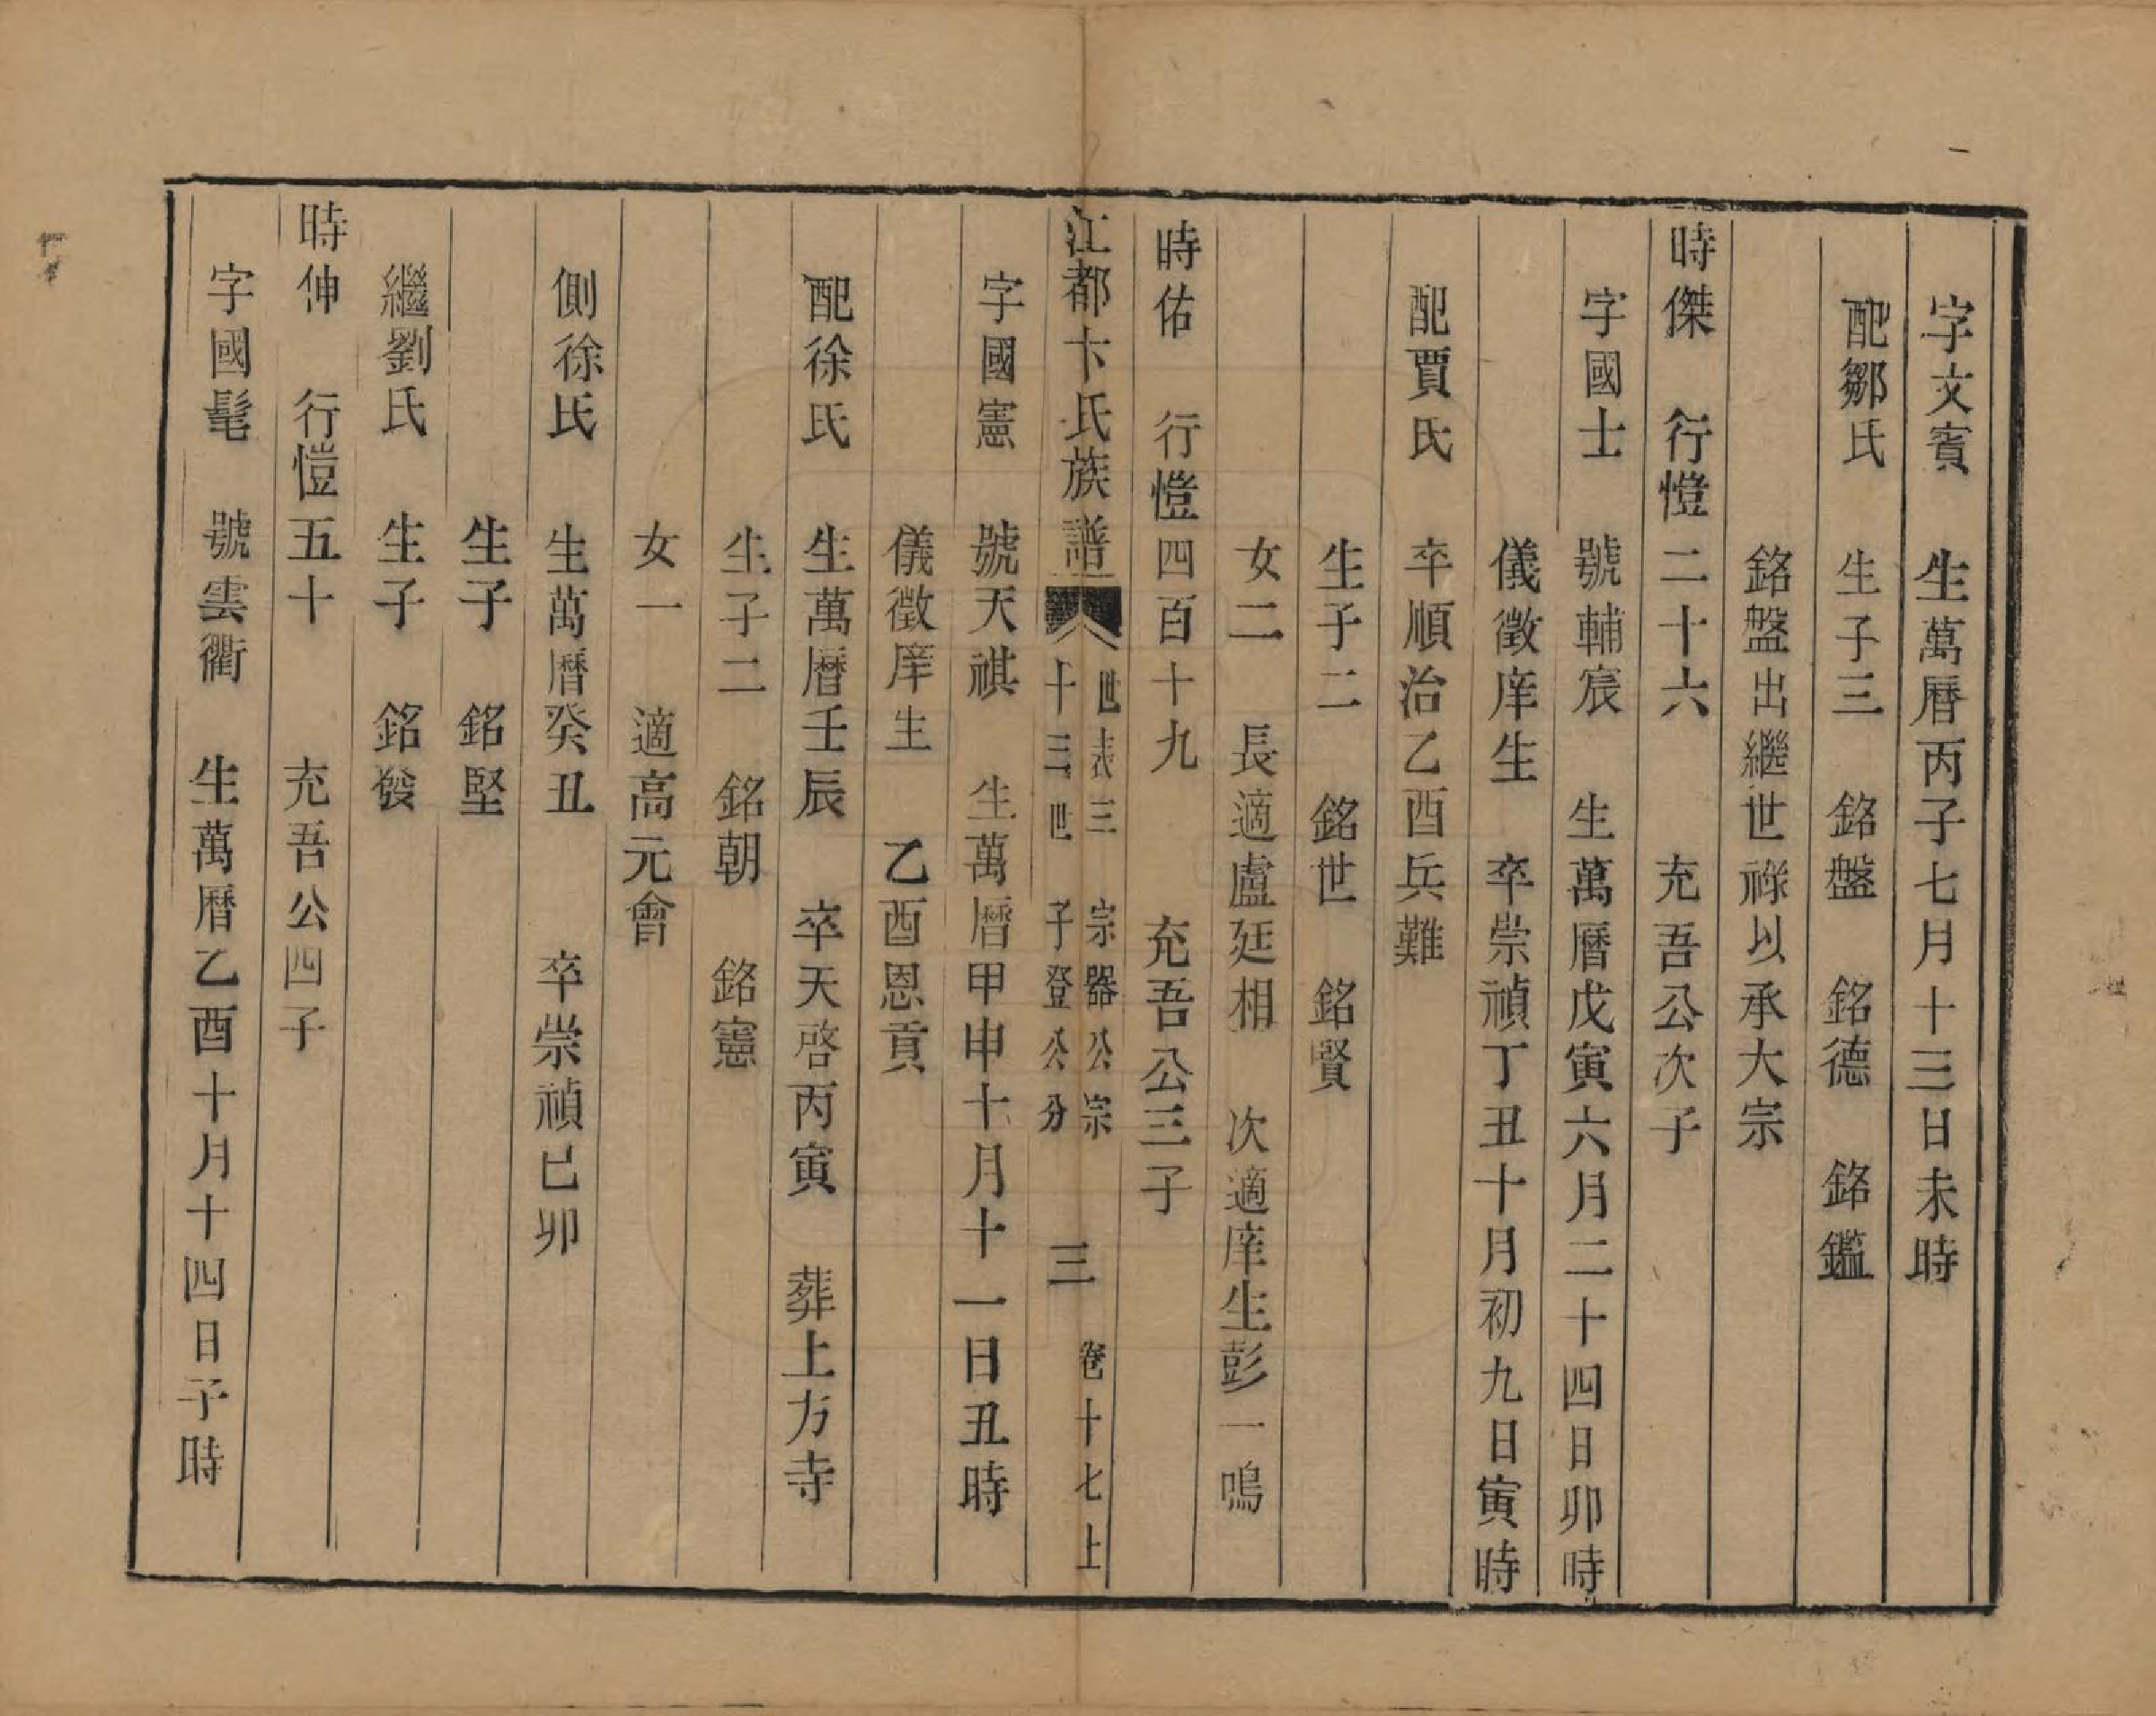 字文賓　生萬曆丙子七月十三日未時
配鄒氏　生子三　銘盤　銘德　銘鑑
銘盤出繼世祿以承大宗
時傑　行愷二十六　充吾公次子
字國士　號輔宸　生萬曆戊寅六月二十四日卯時
儀徵庠生　卒崇禎丁丑十月初九日寅時
配賈氏　卒順治乙酉兵難
生子二　銘世　銘賢
女二　長適盧廷相　次適庠生彭一鳴
時佑　行愷四百十九　充吾公三子
江都卞氏族譜　世表三　宗器公宗　十三世　子登公分　三　卷十七上
字國憲　號天祺　生萬曆甲申十月十一日丑時
儀徵庠生　乙酉恩貢
配徐氏　生萬曆壬辰　卒天啓丙寅　葬上方寺
生子二　銘朝　銘憲
女一　適高元會
側徐氏　生萬曆癸丑　卒崇禎已卯
生子　銘堅
繼劉氏　生子　銘發
時伸　行愷五十　充吾公四子
字國髦　號雲衢　生萬曆乙酉十月十四日子時